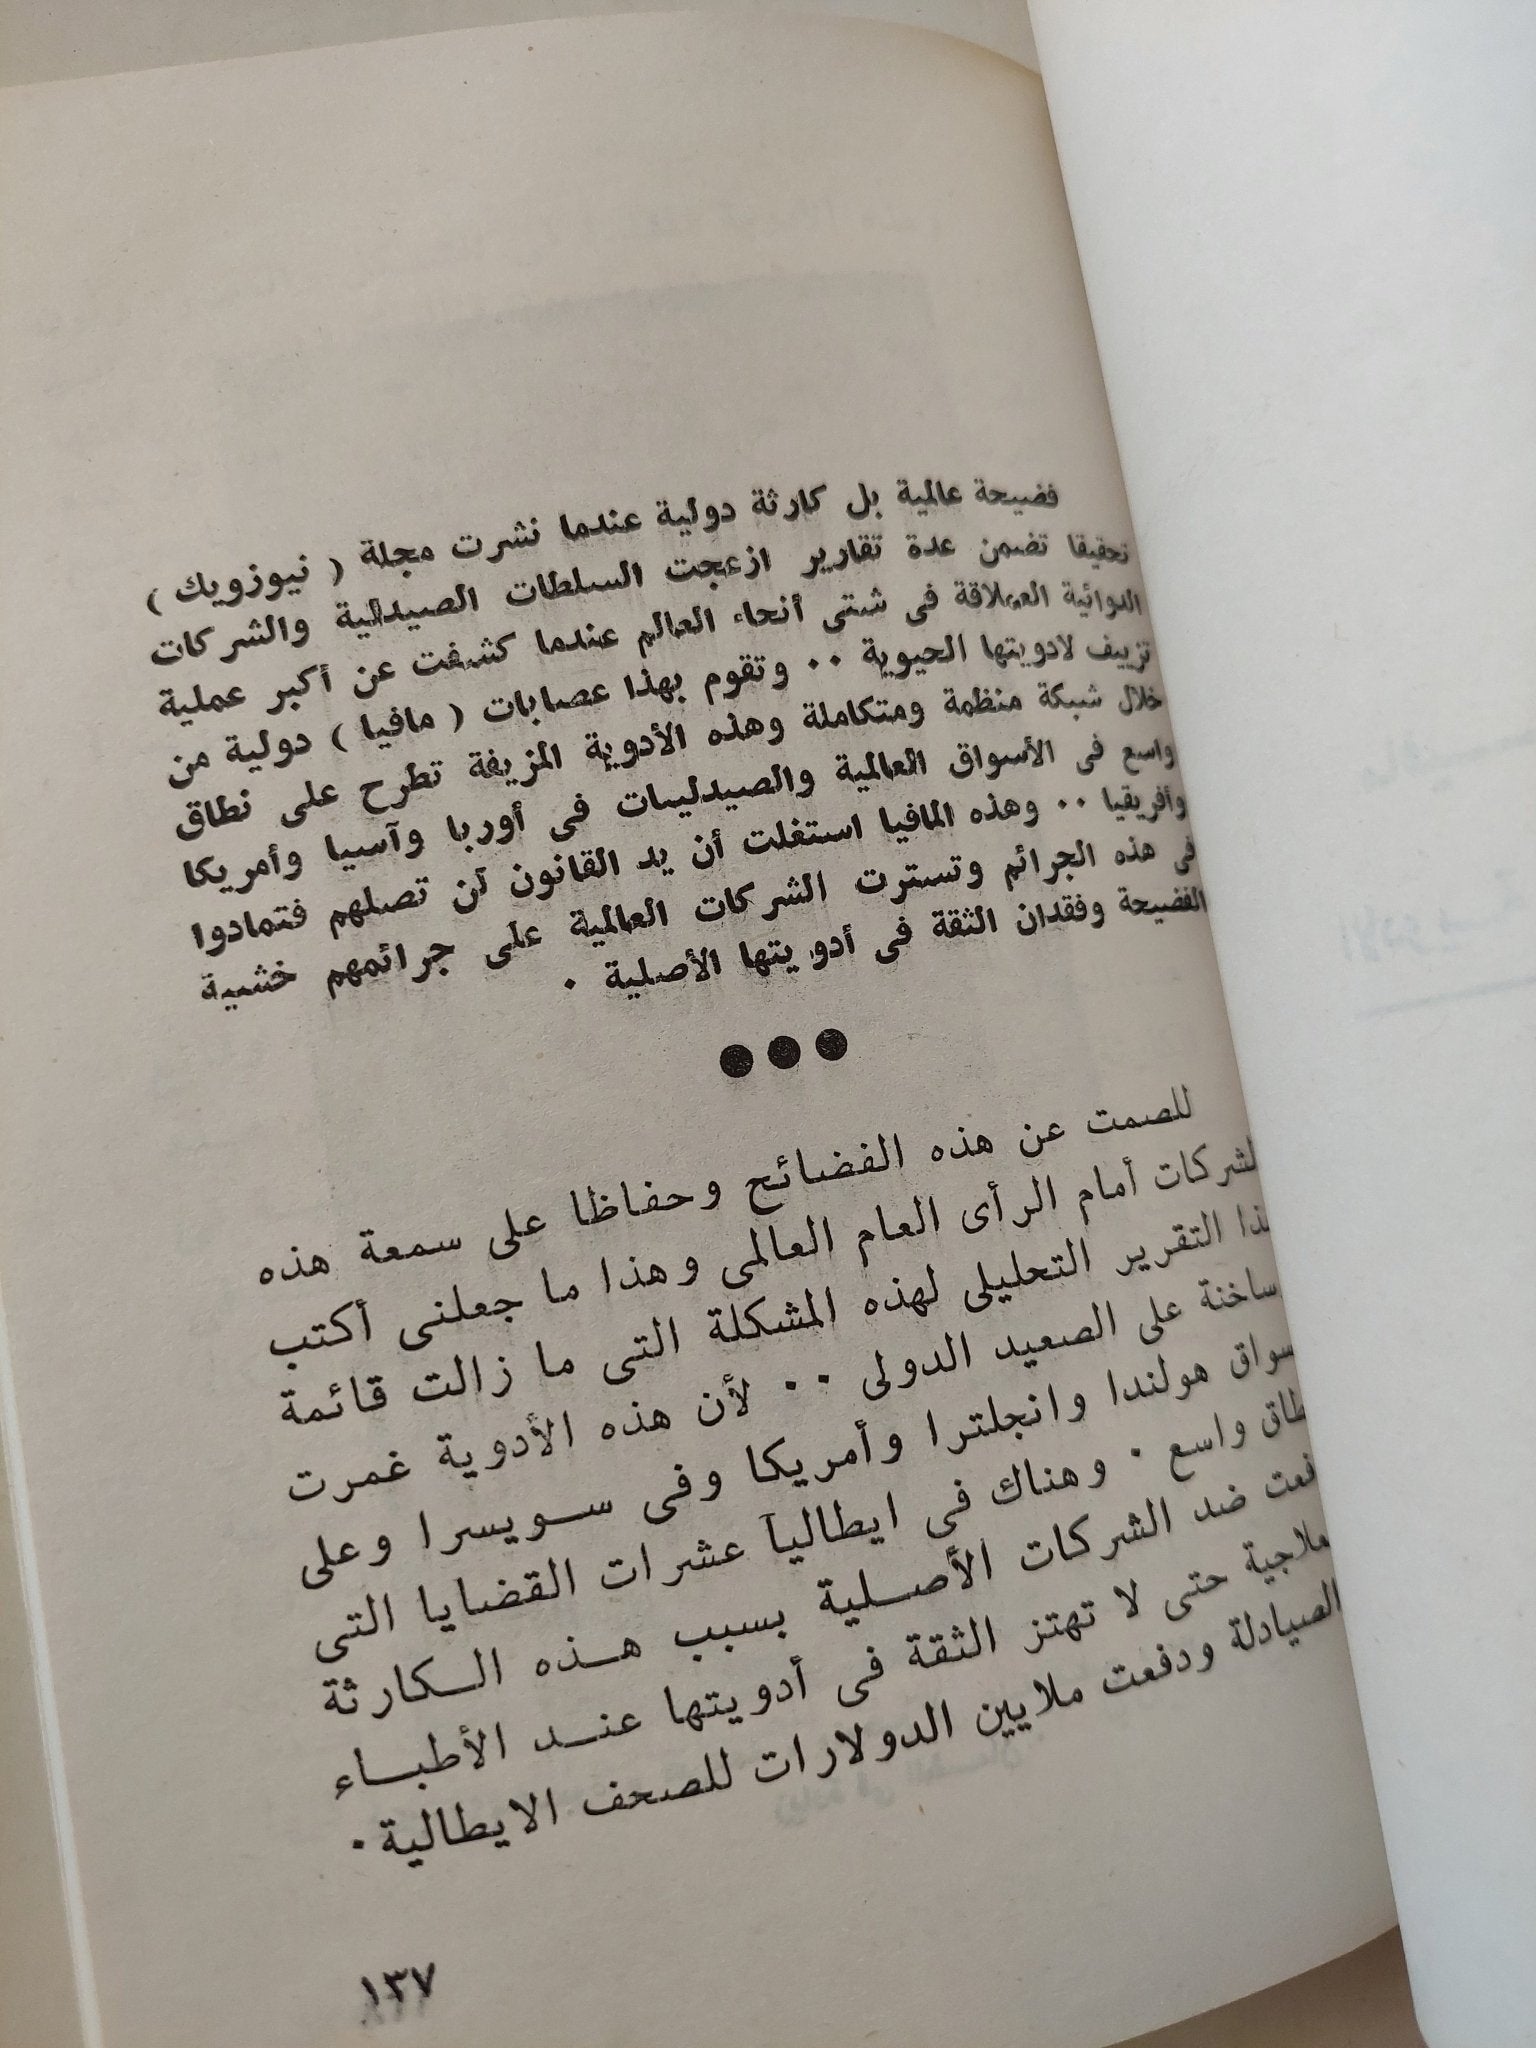 فضيحة عالمية بل كارثة دولية عندما نشرت مجلة ( نيوزويك )
تحقيقا تضمن عدة تقارير ازعجت السلطات الصيدلية والشركات
الدوائية العملاقة فى شتى أنحاء العالم عندما كشفت عن أكبر عملية
تزييف لادويتها الحيوية ٠٠ وتقوم بهذا عصابات ( مافيا ) دولية من
خلال شبكة منظمة ومتكاملة وهذه الأدوية المزيفة تطرح على نطاق
واسع فى الأسواق العالمية والصيدليات فى أوربا وآسيا وأمريكا
وأفريقيا ٠٠ وهذه المافيا استغلت أن يد القانون لن تصلهم فتمادوا
فى هذه الجرائم وتسترت الشركات العالمية على جرائمهم خشية
الفضيحة وفقدان الثقة فى أدويتها الأصلية ٠
●●●
للصمت عن هذه الفضائح وحفاظا على سمعة هذه
لشركات أمام الرأى العام العالمى وهذا ما جعلنى أكتب
ذا التقرير التحليلى لهذه المشكلة التى ما زالت قائمة
ساخنة على الصعيد الدولى ٠٠ لأن هذه الأدوية غمرت
سواق هولندا وانجلترا وأمريكا وفى سويسرا وعلى
طاق واسع ٠ وهناك فى ايطاليا عشرات القضايا التى
فعت ضد الشركات الأصلية بسبب هذه الكارثة
علاجية حتى لا تهتز الثقة فى أدويتها عند الأطباء
الصيادلة ودفعت ملايين الدولارات للصحف الايطالية ٠
١٣٧